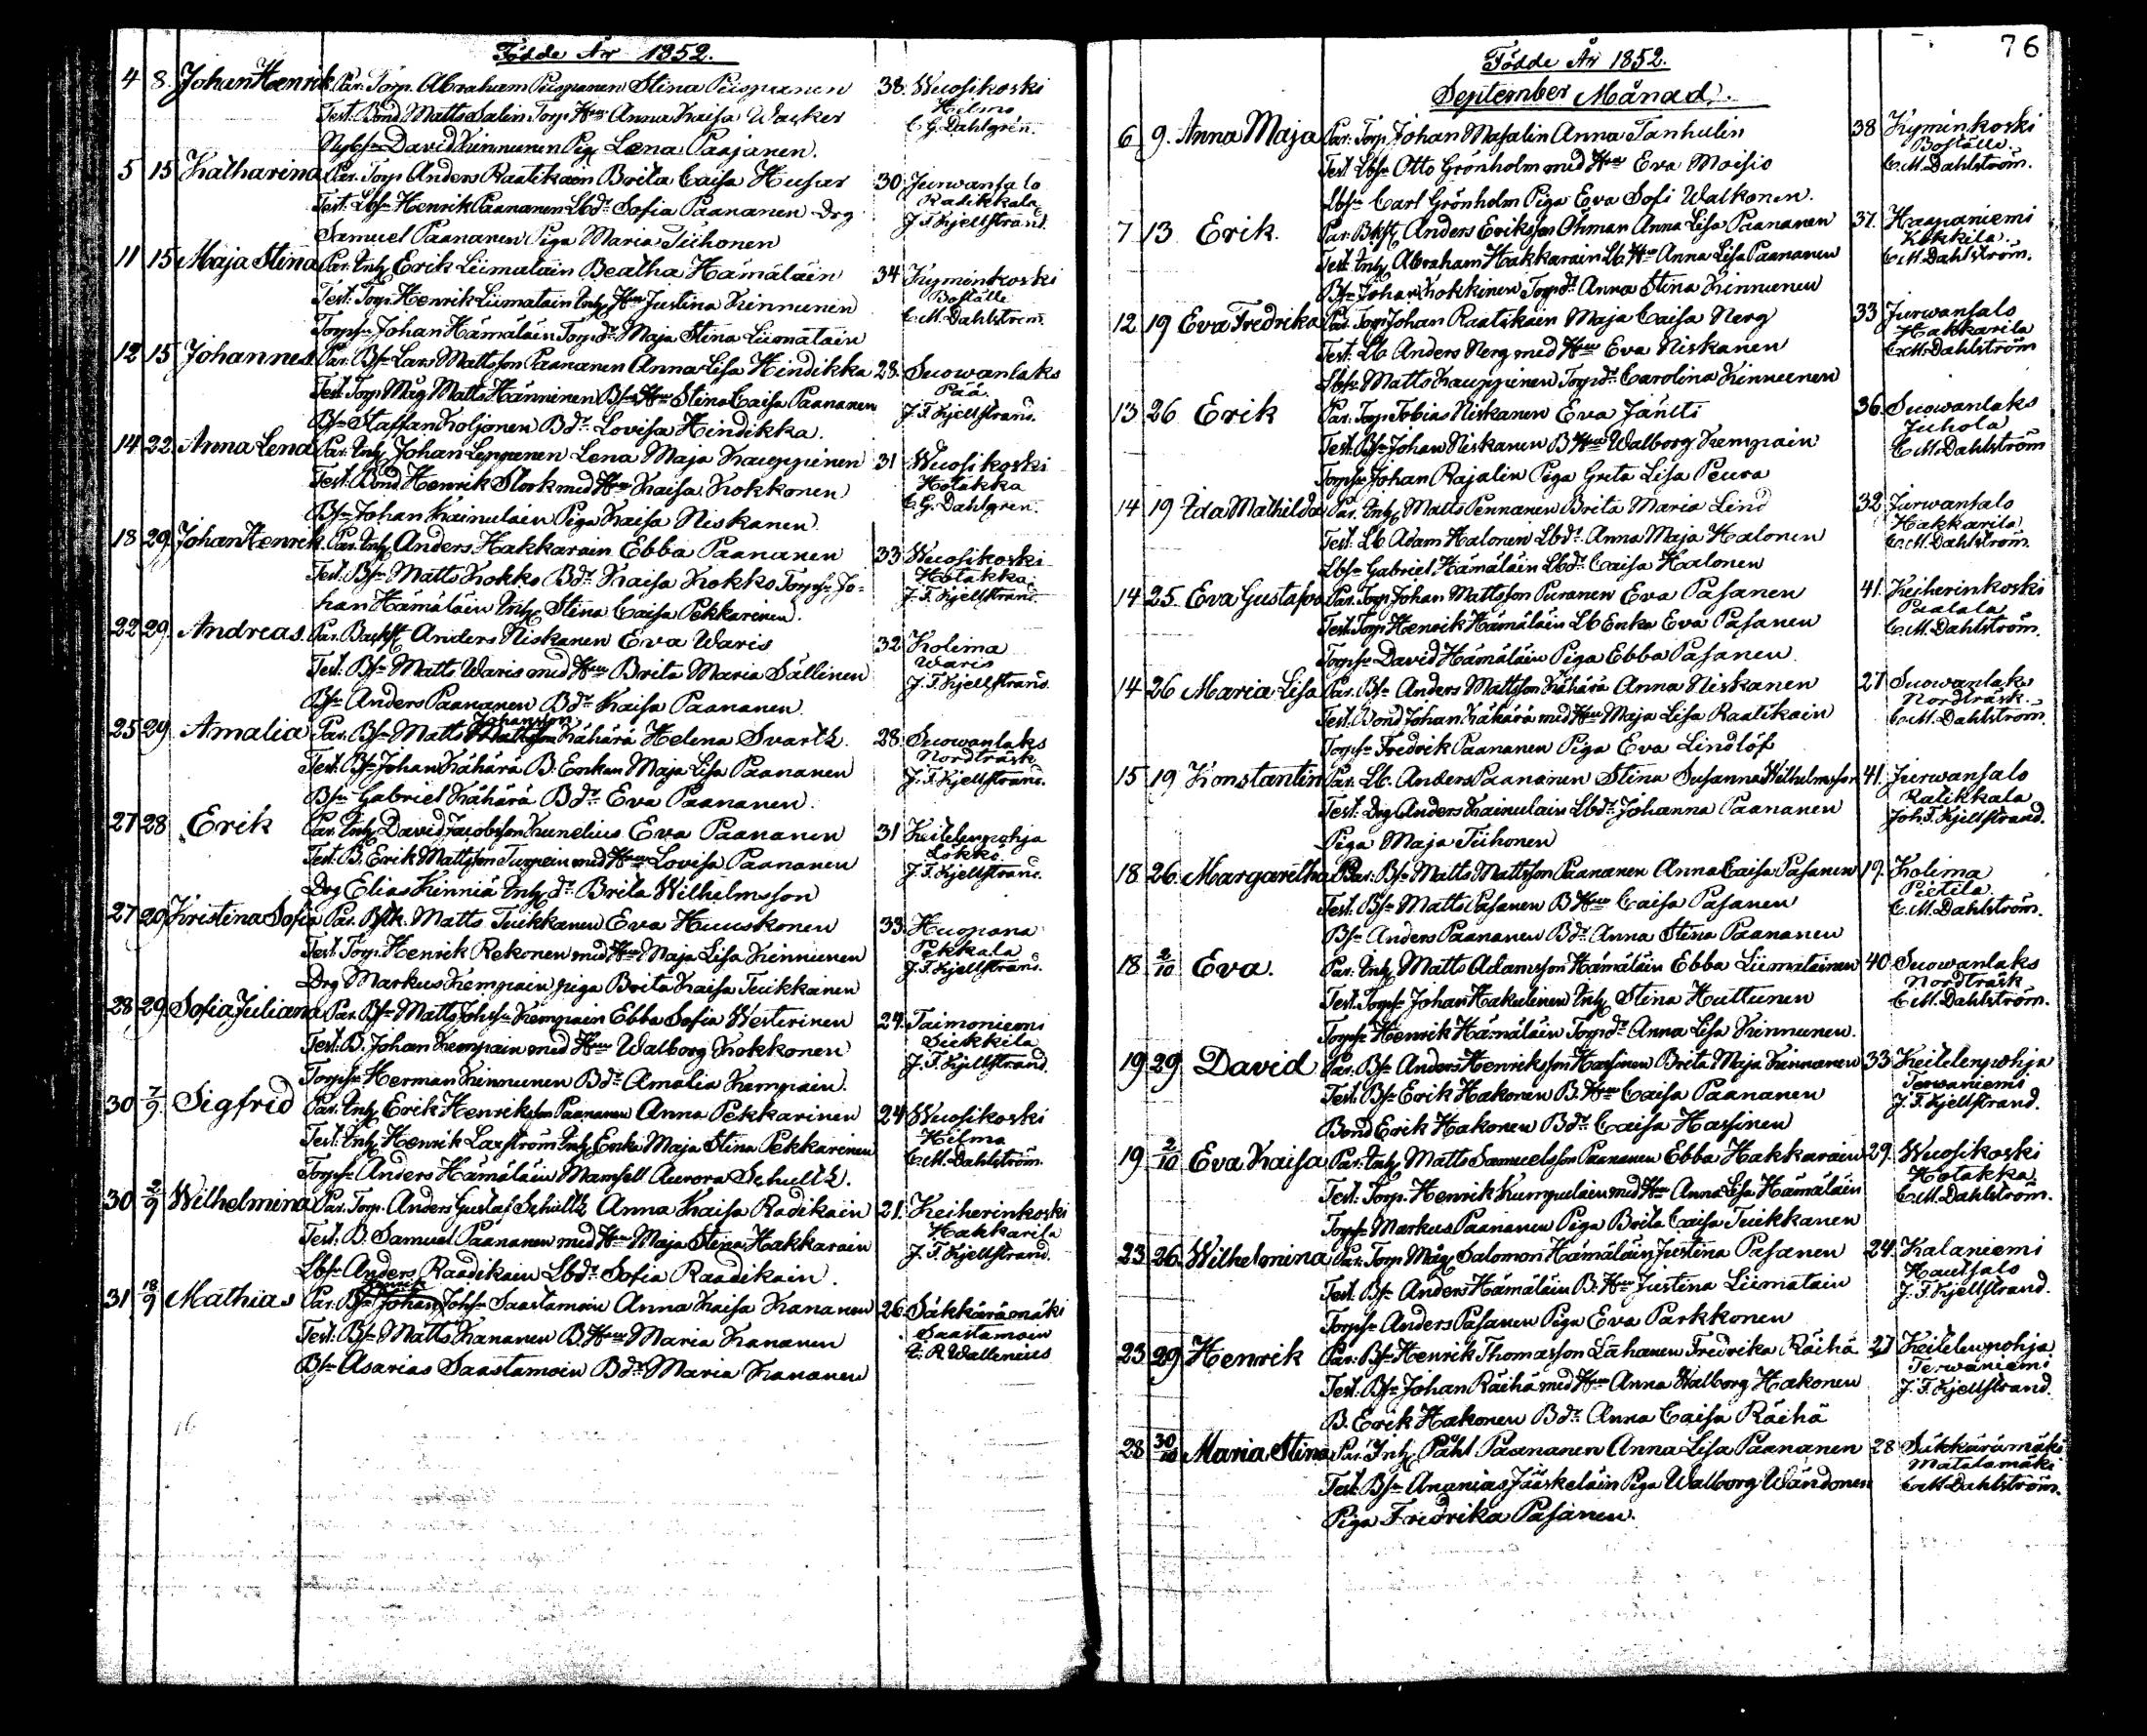 Födde År 1852.
4 8. Johan Henrik Par. Torp. Abraham Piispanen Stina Piispanen 38. Wuosikoski
Test. Bond Matts Salin Torp. Hru Anna Kaisa Wacker Hilmo
Nybsn David Kinnunen Pig. Lena Paajanen. C. G. Dahlgrén.
5 15 Katharina Par. Torp. Anders Raatikain Brita Caisa Husar 30 Jurwansalo
Test. Lbsn Henrik Paananen Lbdr Sofia Paananen Drg Radikkala
Samuel Paananen Piga Maria Tiihonen J. F. Kjellstrand.
11 15 Maja Stina Par. Inh. Erik Liimatain Beatha Hämäläin 34 Kyminkoski
Test. Torp. Henrik Liimatain Inh. Hru Justina Kinnunen Boställe
Torpsn Johan Hämäläin Torpdr Maja Stina Liimatain C. M. Dahlström.
12 15 Johannes Par. Bsn Lars Mattsson Paananen Anna Lisa Hindikka 28. Suowanlaks
Test. Torp. Måg Matts Hänninen Bsn Hru Stina Caisa Paananen Pää.
Bsn Staffan Koljonen Bdr Lovisa Hindikka. J. F. Kjellstrand.
14 22. Anna Lena Par. Inh. Johan Leppänen Lena Maja Kauppinen 31 Wuosikoski
Test. Bond Henrik Stock med Hru Kaisa Kokkonen Hotakka
Bsn Johan Kainulain Piga Kaisa Niskanen. C. G. Dahlgren.
18 29. Johan Henrik Par. Inh. Anders Hakkarain Ebba Paananen 33 Wuosikoski
Test. Bsn Matts Kokko Bdr Kaisa Kokko Torpsn Jo- Hotakka.
han Hämäläin Inh. Stina Caisa Pekkarinen. J. F. Kjellstrand.
22 29. Andreas. Par. Backst. Anders Niskanen Eva Waris 32 Kolima
Test. Bsn Matts Waris med Hru Brita Maria Sällinen Waris
Bsn Anders Paananen Bdr Kaisa Paananen. J. F. Kjellstrand.
25 29. Amalia Par. Bsn Matts Johansson Kähärä Helena Svartz. 28. Suowanlaks
Test. Bsn Johan Kähärä B. Enkan Maja Lisa Paananen Nordträsk
Bsn Gabriel Kähärä Bdr Eva Paananen. J. F. Kjellstrand.
27 28 Erik Par. Inh. David Jacobsson Kunelius Eva Paananen 31 Keitelenpohja
Test. B. Erik Mattsson Turpein med Hru Lovisa Paananen Lökkö.
Drg Elias Kinniä Inh. dr Brita Wilhelmsson J. F. Kjellstrand.
27 29 Kristena Sofia Par. Bstk. Matts Tiikkanen Eva Huuskonen 33. Huopana
Test. Torp. Henrik Rekonen med Hru Maja Lisa Kinnunen Pekkala
Drg Markus Kempain piga Brita Kaisa Tiikkainen J. F. Kjellstrand.
28 29. Sofia Juliana Par. Bsn Matts Johssn Kempain Ebba Sofia Westerinen 24. Taimoniemi
Test. B. Johan Kempain med Hru Walborg Kokkonen Siekkila
Torpsn Herman Kinnunen Bdr Amalia Kempain. J. F. Kjellstrand.
30 7/9 Sigfrid Par. Inh. Erik Henriksson Paananen Anna Pekkarinen 24 Wuosikoski
Test. Inh. Henrik Laxström Inh. Enka Maja Stina Pekkarinen Hilma
Torpsn Anders Hämäläin Mamsell Aurora Schultz. C. M. Dahlström.
30 2/9 Wilhelmina Par. Torp. Anders Gustaf Schultz Anna Kaisa Radikain 21. Keiherinkoski
Test. B. Samuel Paananen med Hru Maja Stina Hakkarain Hakkarila
Lbsn Anders Raadikain Lbdr Sofia Raadikain. J. F. Kjellstrand.
31 18/9 Mathias Par. Bsn Henrik Johsn Saastamoin Anna Kaisa Kananen 26. Säkkärämäki
Test. Bsn Matts Kananen B. Hru Maria Kananen Saastamoin
Bsn Asarias Saastamoin Bdr Maria Kananen R Wallenius
16
76
Födde År 1852.
September Månad.
6 9. Anna Maja Par. Torp. Johan Masalin Anna Tanhulin 38 Kyminkoski
Test. Lbsn Otto Grönholm med Hru Eva Moisio Boställe.
Lbsn Carl Grönholm Piga Eva Sofi Walkonen. C. M. Dahlström.
7 13 Erik. Par. Bkst. Anders Eriksson Öhman Anna Lisa Paananen 37. Haapaniemi
Test. Inh. Abraham Hakkarain Lb Hru Anna Lisa Paananen Kokkila.
Bsn Johan Kokkinen Torpdr Anna Stina Kinnunen C. M. Dahlström.
12 19 Eva Fredrika Par. Torp. Johan Raatikain Maja Caisa Nerg 33 Jurwansalo
Test. Lb. Anders Nerg med Hru Eva Niskanen Hakkarila
Lbsn Matts Kauppinen Torpdr Carolina Kinnunen C. M. Dahlström
13 26 Erik Par. Torp. Tobias Niskanen Eva Jäntti 36. Suowanlaks
Test. Bsn Johan Niskanen B Hru Walborg Kempain Juhola
Torpsn Johan Rajalin Piga Greta Lisa Peura C. M. Dahlström
14 19 Ida Mathilda Par. Inh. Matts Pennanen Brita Maria Lind 32 Jurwansalo
Test. Lb. Adam Halonen Lbdr Anna Maja Halonen Hakkarila
Lbsn Gabriel Hämäläin Lbdr Caisa Halonen C. M. Dahlström.
14 25. Eva Gustafva Par. Torp. Johan Mattsson Piiranen Eva Pasanen 41. Keiherinkoski
Test. Torp. Henrik Hämäläin Lb Enka Eva Pasanen Paalala
Torpsn David Hämäläin Piga Ebba Pasanen. C. M. Dahlström.
14 26 Maria Lisa Par. Bsn Anders Mattsson Kähärä Anna Niskanen 27 Suowanlaks
Test. Bond Johan Kähärä med Hru Maja Lisa Raatikain Nordträsk.
Torpsn Fredrik Paananen Piga Eva Lindlöf C. M. Dahlström.
15 19 Konstantin Par. Lb. Anders Paananen Stina Susanna Wilhelmsson 41. Jurwansalo
Test. Drg Anders Kainulain Lbdr Johanna Paananen Ratikkala
Piga Maja Tiihonen Joh. F. Kjellstrand.
18 26. Margaretha Par. Bsn Matts Mattsson Paananen Anna Caisa Pasanen 19. Kolima
Test. Bsn Matts Pasanen B Hru Caisa Pasanen Pietila.
Bsn Anders Paananen Bdr Anna Stina Paananen C. M. Dahlström.
18 2/10 Eva. Par. Inh. Matts Adamsson Hämäläin Ebba Liimatainen 40. Suowanlaks
Test. Torpsn Johan Hakulinen Inh. Stina Huttunen Nordträsk
Torpsn Henrik Hämäläin Torpdr Anna Lisa Kinnunen. C. M. Dahlström.
19 29 David Par. Bsn Anders Henriksson Hassinen Brita Maja Kinnunen 33 Keitelenpohja
Test. Bsn Erik Hakonen B. Hru Caisa Paananen Terwaniemi
Bond Erik Hakonen Bdr Caisa Hassinen J. F. Kjellstrand.
19 2/10 Eva Kaisa Par. Inh. Matts Samuelsson Paananen Ebba Hakkarain 29. Wuosikoski
Test. Torp. Henrik Kumpulain med Hru Anna Lisa Hämäläin Hotakka
Torpsn Markus Paananen Piga Brita Caisa Tiikkanen C. M. Dahlström.
23 26. Wilhelmina Par. Torp. Måg. Salomon Hämäläin Justina Pasanen 24. Kalaniemi
Test. Bsn Anders Hämäläin B. Hru Justina Liimatain Hautsalo
Torpsn Anders Pasanen Piga Eva Parkkonen J. F. Kjellstrand.
23 29 Henrik Par. Bsn Henrik Thomasson Lahanen Fredrika Räihä 27 Keitelenpohja
Test. Bsn Johan Räihä med Hru Anna Walborg Hakonen Terwaniemi
B. Erik Hakonen Bdr Anna Caisa Räihä J. F. Kjellstrand.
28 30/10 Maria Stina Par. Inh. Påhl Paananen Anna Lisa Paananen 28 Säkkärämäki
Test. Bsn Ananias Jääskeläin Piga Walborg Wändonen Matalamäki
Piga Fredrika Pasanen. C. M. Dahlström.